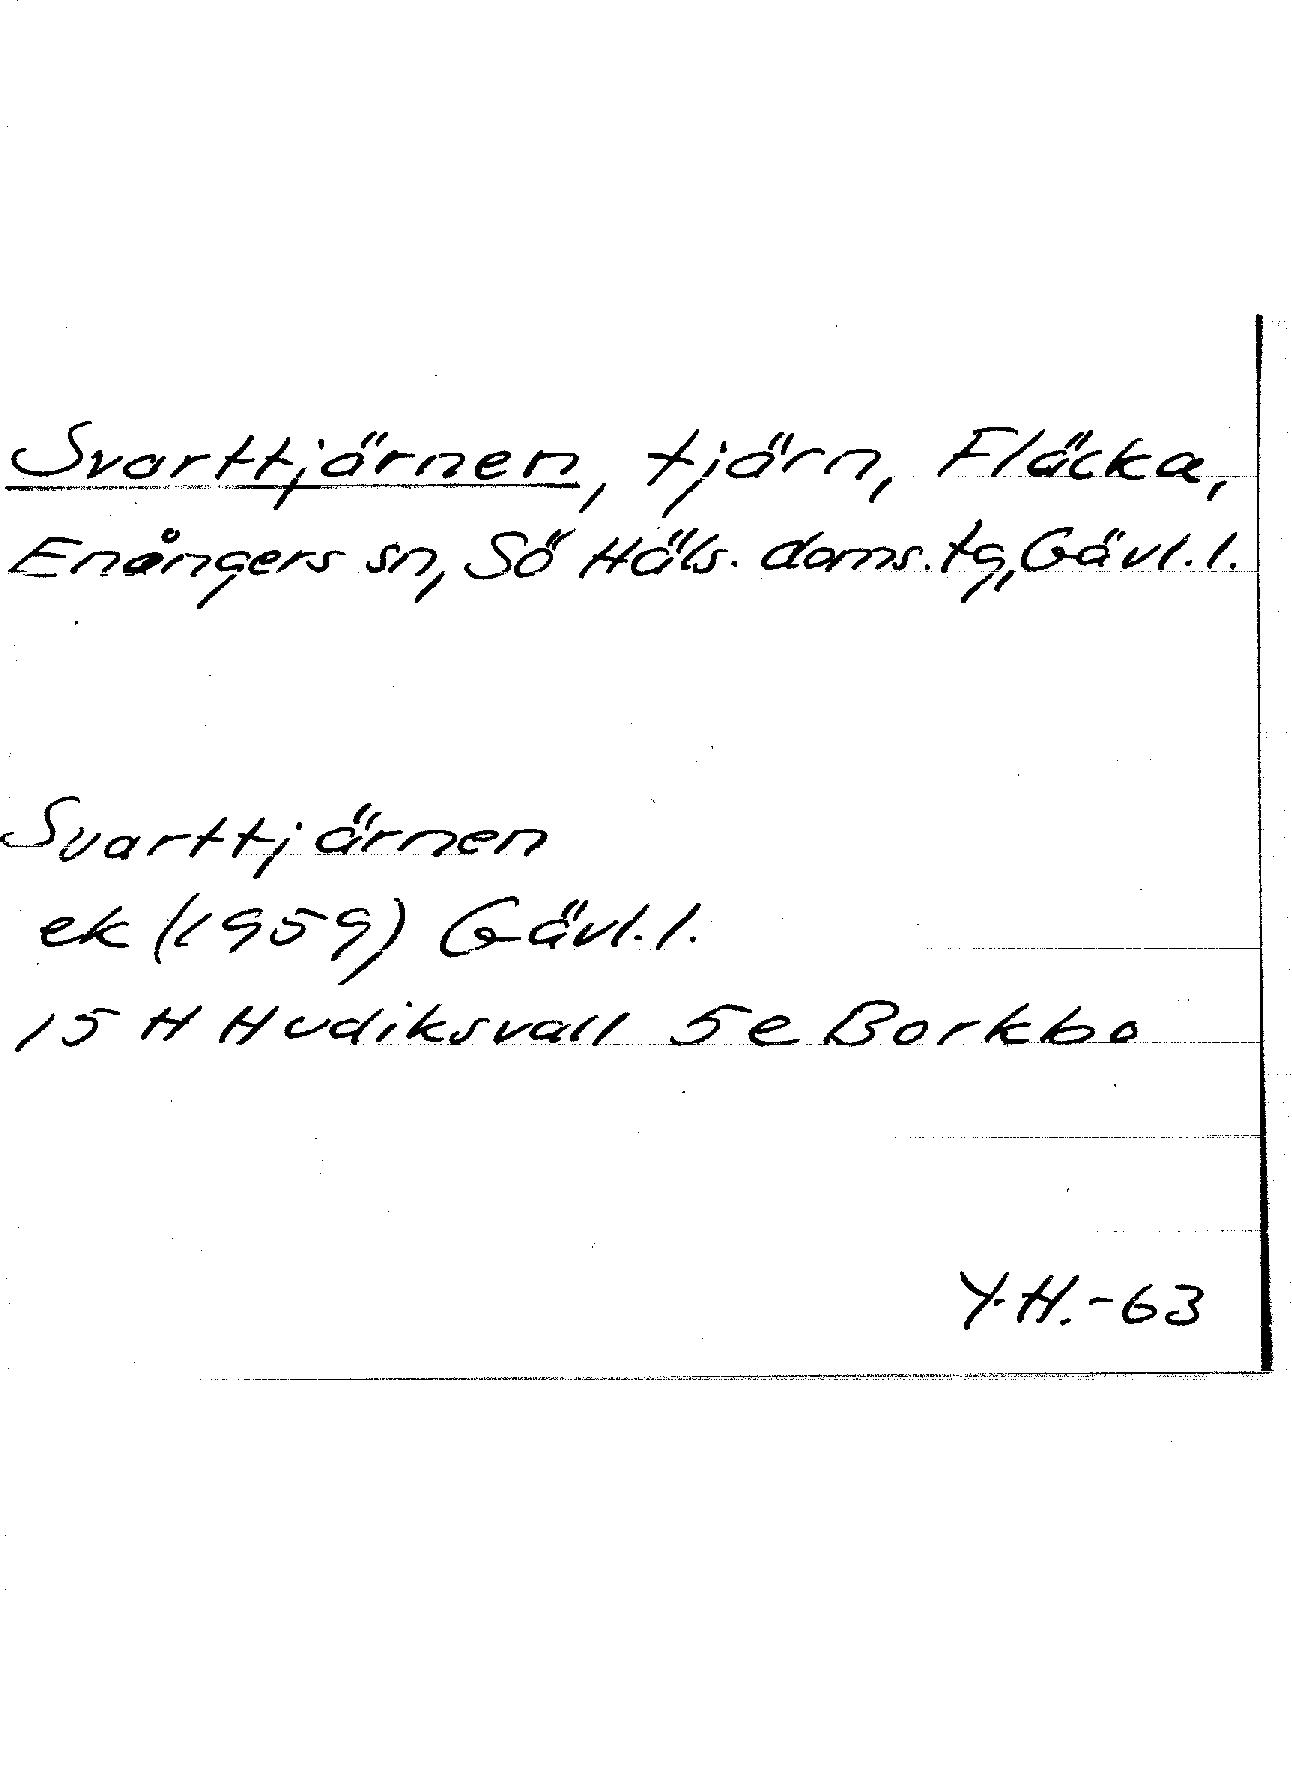 Svarttjärnen, tjärn, Fläcka,
Enångers sn, Sö Häls. doms.tg, Gävl.l.
Svarttjärnen
ek (1959) Gävl.l.
15 H Hudiksvall 5e Borkbo
Y.H.-63